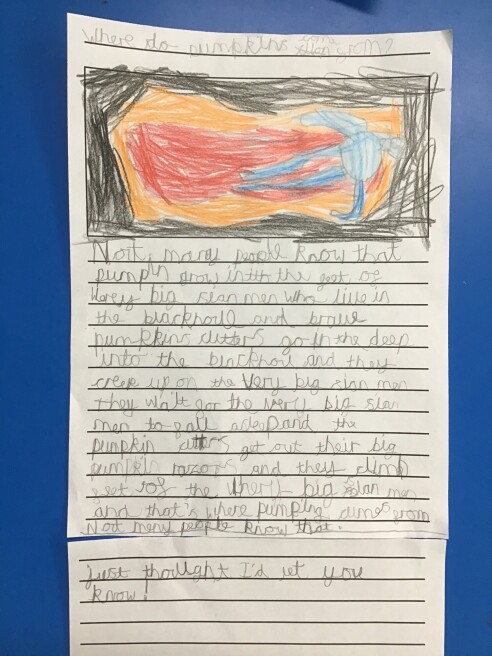 Where do pumpkins come from?
Nort, many people know that
pumpin grow intth the geet of
verey big slan men who live in
the blackholl and brave
pumpkins cutters go in the deep
into the blackholl and they
creep up on the very big slan men
they wait for the very big slan
men to fall asleep and the
pumpkin cutters get out their big
pumpkin razors and they climb
geet rof the very big slan men
and that's where pumping cumes from
Nort meny people know that.
just thought I'd let you
know!